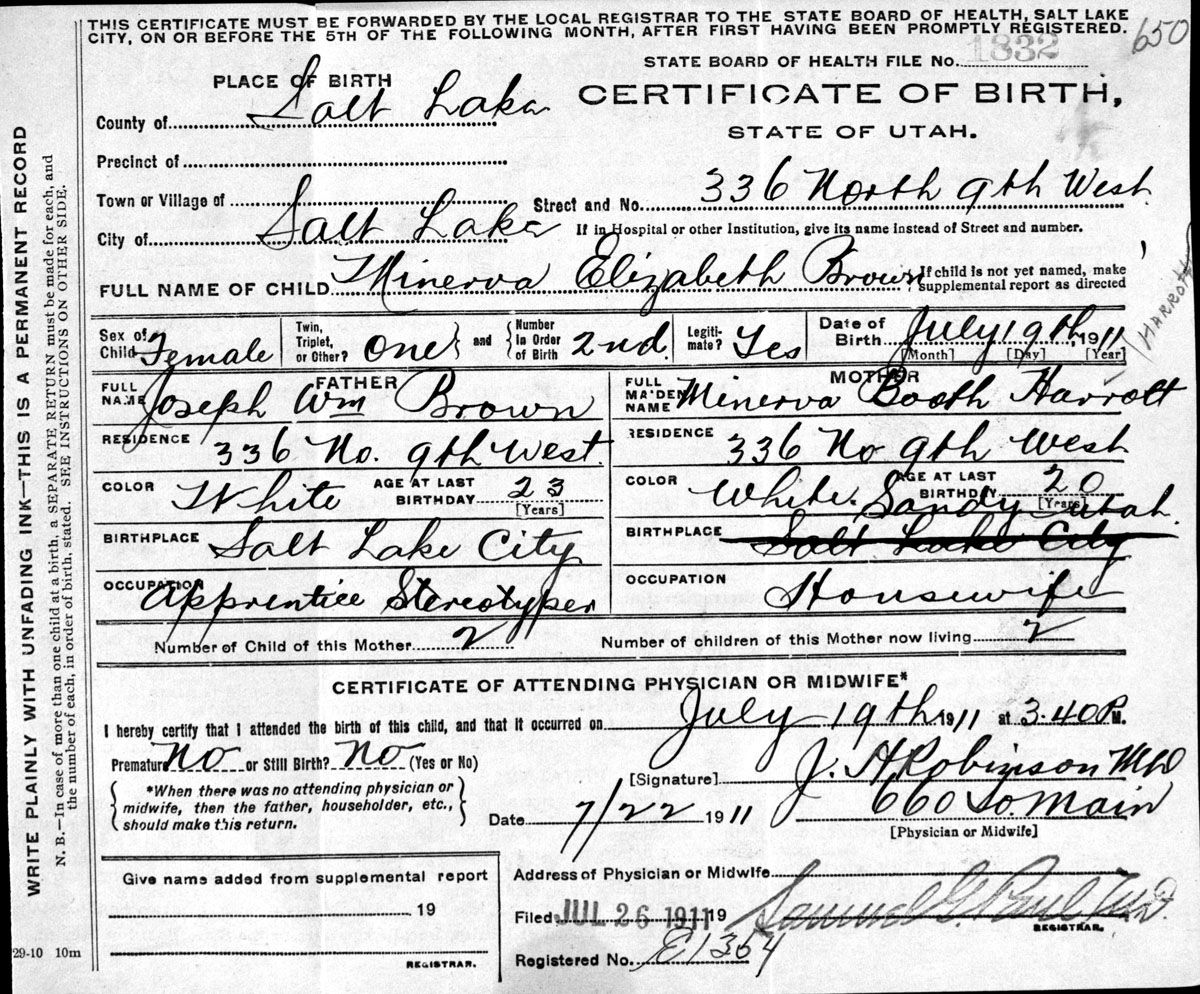 THIS CERTIFICATE MUST BE FORWARDED BY THE LOCAL REGISTRAR TO THE STATE BOARD OF HEALTH, SALT LAKE
CITY, ON OR BEFORE THE 5TH OF THE FOLLOWING MONTH, AFTER FIRST HAVING BEEN PROMPTLY REGISTERED.
650
STATE BOARD OF HEALTH FILE No. 1832
PLACE OF BIRTH
CERTIFICATE OF BIRTH,
STATE OF UTAH.
County of Salt Lake
Precinct of
Town or Village of
Street and No. 336 North 9th West
City of Salt Lake
If in Hospital or other Institution, give its name instead of Street and number.
FULL NAME OF CHILD Minerva Elizabeth Brown
If child is not yet named, make supplemental report as directed
HARROTT
Sex of Child Female
Twin, Triplet, or Other? One } and { Number in Order of Birth 2nd.
Legiti-mate? Yes
Date of Birth July 19th, 1911
[Month] [Day] [Year]
FATHER
FULL NAME Joseph Wm Brown
RESIDENCE 336 No. 9th West.
COLOR White
AGE AT LAST BIRTHDAY 23
[Years]
BIRTHPLACE Salt Lake City
OCCUPATION Apprentice Stereotyper
MOTHER
FULL MAIDEN NAME Minerva Booth Harrott
RESIDENCE 336 No 9th West
COLOR White.
AGE AT LAST BIRTHDAY 20
[Years]
Sandy Utah.
BIRTHPLACE Salt Lake City
OCCUPATION Housewife
Number of Child of this Mother 2
Number of children of this Mother now living 2
CERTIFICATE OF ATTENDING PHYSICIAN OR MIDWIFE*
I hereby certify that I attended the birth of this child, and that it occurred on July 19th 1911 at 3.40 P. M.
Premature No or Still Birth? No (Yes or No)
*When there was no attending physician or
midwife, then the father, householder, etc.,
should make this return.
[Signature] J. H. Robinson MD
Date 7/22 1911
660 So Main
[Physician or Midwife]
Give name added from supplemental report
19
REGISTRAR.
Address of Physician or Midwife
Filed JUL 26 1911 19
Samuel G. Paul
REGISTRAR.
Registered No. E1364
29-10 10m
WRITE PLAINLY WITH UNFADING INK—THIS IS A PERMANENT RECORD
N. B.—In case of more than one child at a birth, a SEPARATE RETURN must be made for each, and
the number of each, in order of birth, stated. SEE INSTRUCTIONS ON OTHER SIDE.